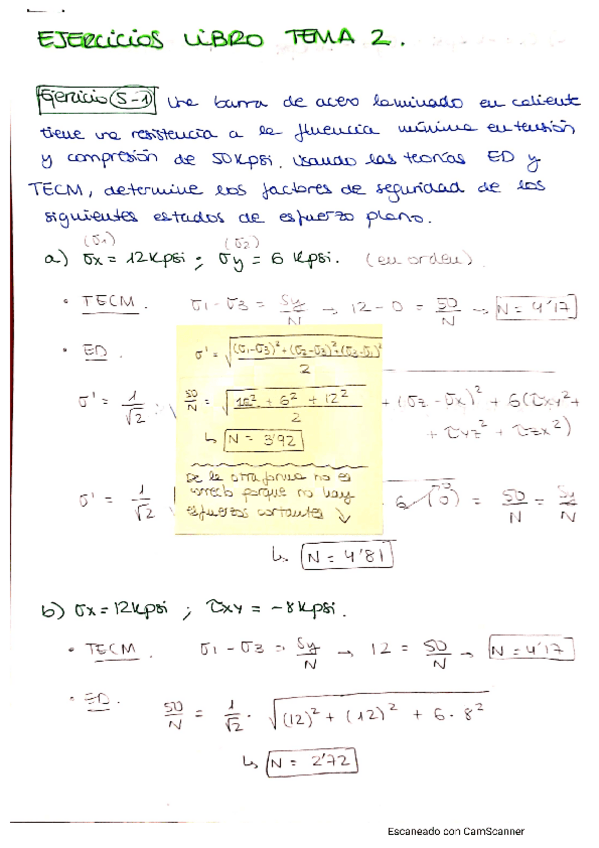 EJERCICIOS LIBRO TEMA 2.
Ejercicio (5-1) Una barra de acero laminado en caliente
tiene una resistencia a la fluencia mínima en tensión
y compresión de 50 Kpsi. Usando las teorías ED y
TECM, determine los factores de seguridad de los
siguientes estados de esfuerzo plano.
(σ1) (σ2)
a) σx = 12 Kpsi ; σy = 6 Kpsi. (en orden).
• TECM. σ1 - σ3 = Sy/N → 12 - 0 = 50/N → N = 4'17
• ED. σ' = √((σ1-σ3)² + (σ2-σ3)² + (σ3-σ1)²)/2
σ' = 1/√2 · √ 50/N = √(12² + 6² + 12²)/2 + (σz - σx)² + 6(τxy² +
+ τyz² + τzx²)
↳ N = 3'92
De la otra forma no es
correcto porque no hay
esfuerzos cortantes ↓
σ' = 1/√2 6 (0)² = 50/N = Sy/N
↳ N = 4'81
b) σx = 12 Kpsi ; τxy = -8 Kpsi.
• TECM. σ1 - σ3 = Sy/N → 12 = 50/N → N = 4'17
• ED. 50/N = 1/√2 · √((12)² + (12)² + 6 · 8²)
↳ N = 2'72
Escaneado con CamScanner